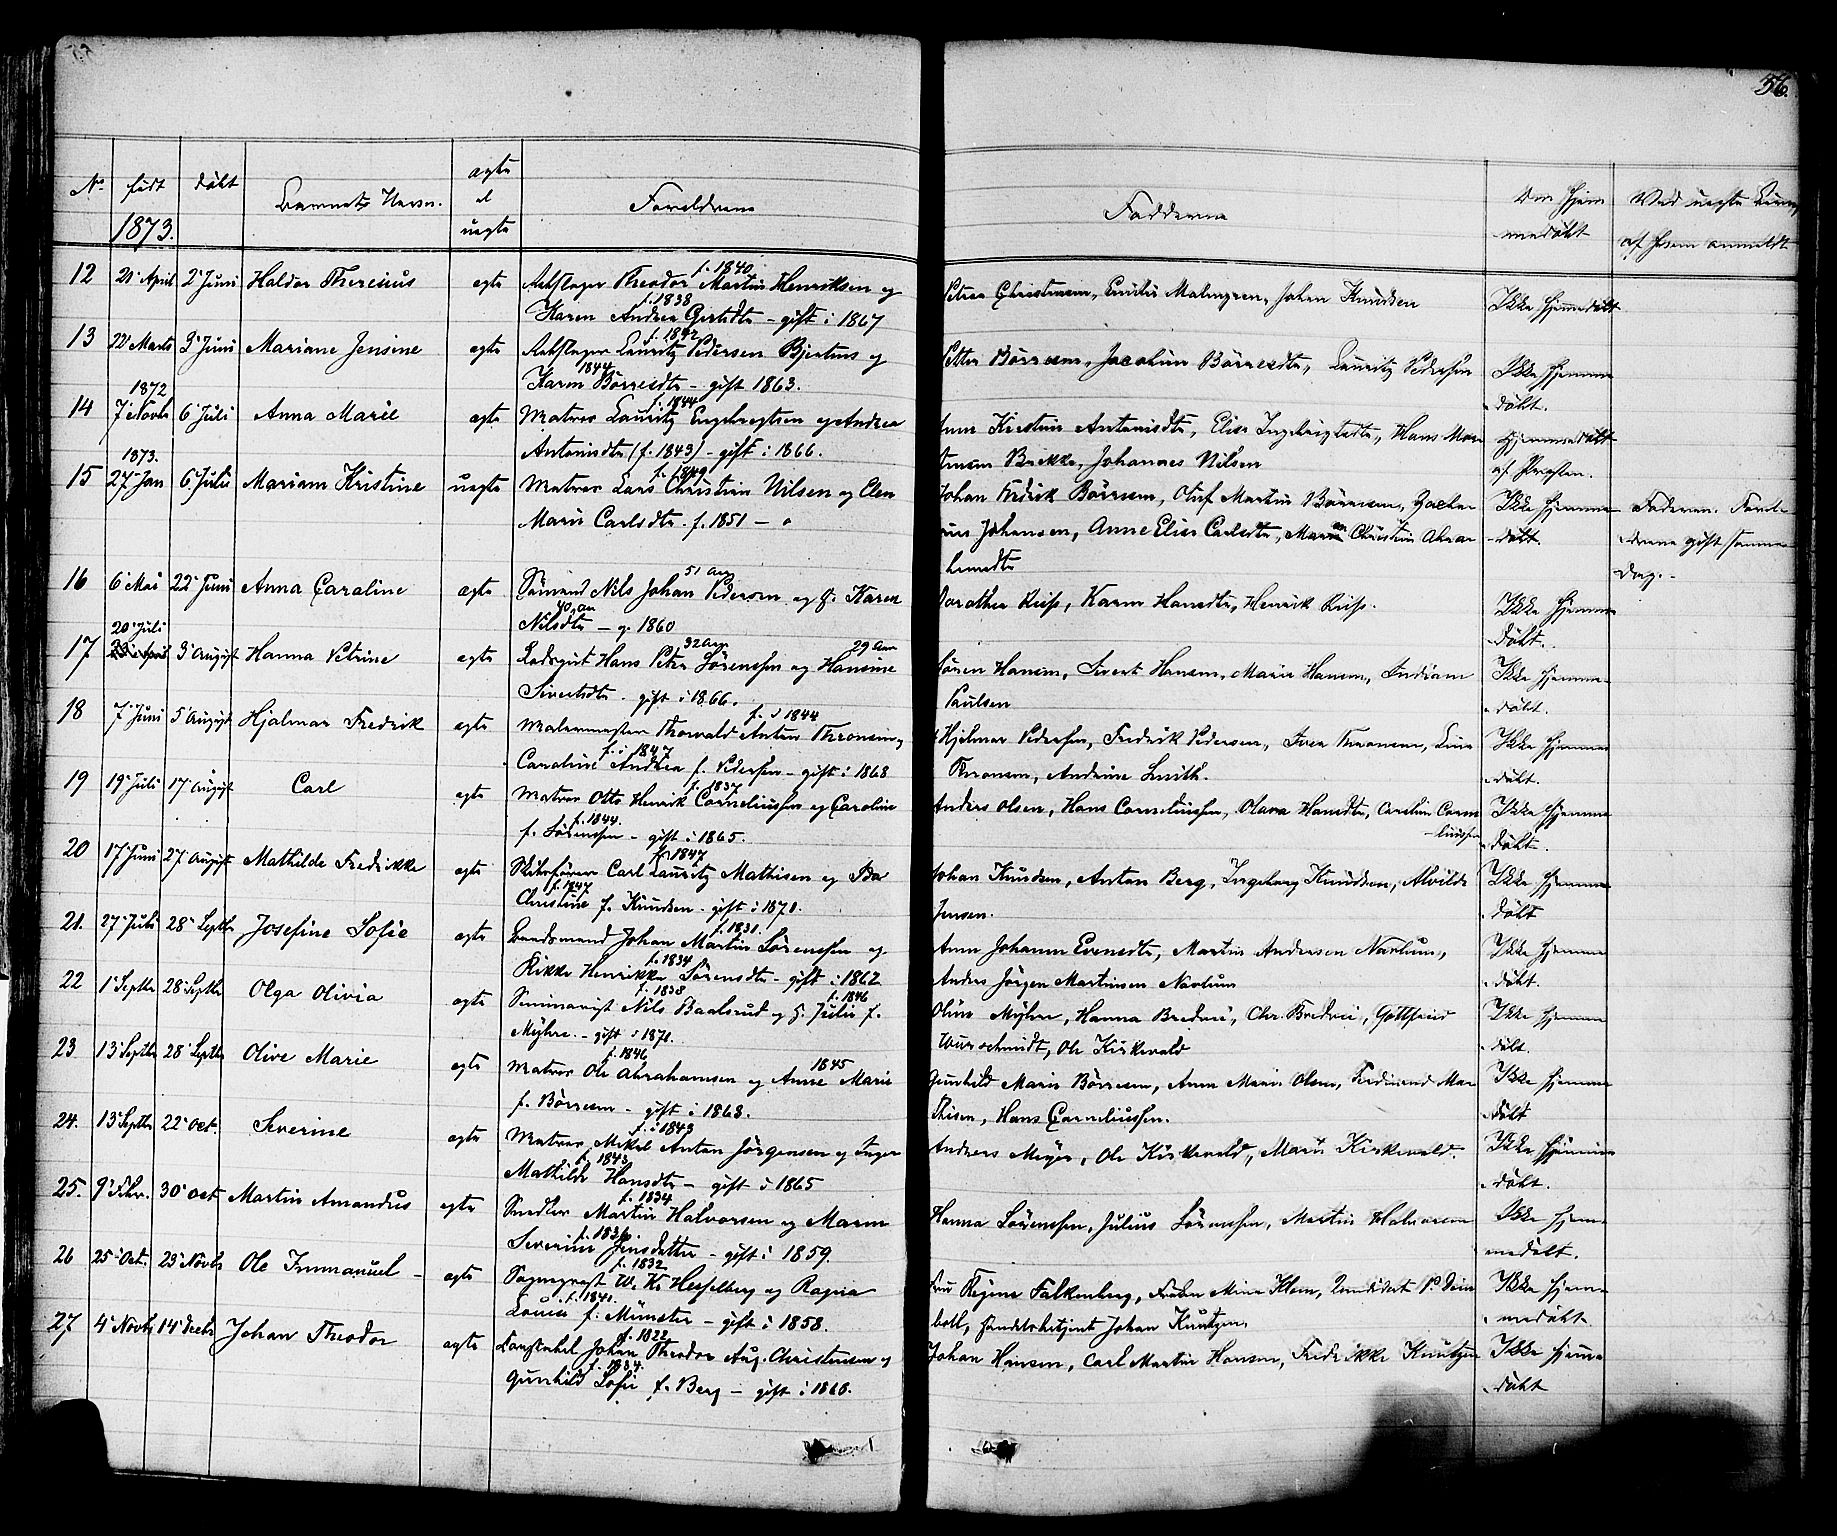 56.
No født døbt Barnets Navn. ægte el uægte Forældrene Fadderne Om hjem medøbt Ved uægte Børn,
1873. af hvem anmeldt
12 21' April 2' Juni Haldor Theresius ægte Theodor Martin Henriksen og f. 1840 Petrea Christensen, Emilie Malmgren, Johan Knudsen Ikke hjemmedøbt
Karen Andrea f. 1838 – gift i 1867
13 22' Marts 3' Juni Mariane Jensine ægte Lauritz Pedersen og f. 1842 Petter Børresen, Jacobine Børresdtr, Lauritz Pedersen Ikke hjemme
Karen Børresdtr 1844 – gift 1863. døbt.
1872
14 7' Novbr 6' Juli Anna Marie ægte Matros Lauritz Engebregtsen og Andrea f. 1844 Kirstine Antonisdtr, Elise Hans Mor Hjemmedøbt
Antonisdtr (f. 1843) – gift i 1866. Brekke, Johannes Nilsen af Præsten.
1873.
15 27' Jan 6' Juli Mariam Kristine uægte Matros Lars Christian Nilsen og Elen f. 1849 Johan Fredrik Børresen, Oluf Martin Børresen, Ikke hjemme Faderen. Foræl
Marie Carlsdtr. f. 1851 – Johansen, Anne Elise Carlsdtr, Christine Abra døbt. drene gift samme
hamsdtr Dag. –
16 6' Mai 22' Juni Anna Caroline ægte Sømand Nils Johan Pedersen og H. Karen 51 Aar Dorothea Riis, Karen Hansdtr, Henrik Riis. Ikke hjemme
Nilsdtr 40 aar – g. 1860 døbt.
20' Juli
17 3' August Hanna Petrine ægte Hans Peter Sørenssen og Hansine 32 Aar 29 Aar Søren Hansen, Sivert Hansen, Marie Hansen, Ikke hjemme
Sivertsdtr – gift i 1866. Paulsen døbt.
18 7' Juni 5' August Hjalmar Fredrik ægte Malermester Thorvald Anton Thronsen og f. i 1844 Hjalmar Pedersen, Fredrik Pedersen, Thronsen, Ikke hjemme
Caroline Andrea f. Pedersen f. i 1847 – gift i 1868 Thronsen, Andrine Smith. døbt.
19 19' Juli 17' August Carl ægte Matros Otto Henrik Corneliussen og Caroline f. 1837 Anders Olsen, Hans Corneliussen, Olava Hansdtr, Caroline Corne Ikke hjemme
f. Sørenssen f. 1844. – gift i 1865. liussen døbt.
20 17' Juni 27' August Mathilde Fredrikke ægte Skibsfører Carl Lauritz Mathisen og Ida f. 1847 Johan Knudsen, Anton Berg, Ingeborg Knudsen, Alvilde Ikke hjemme
Christine f. Knudsen f. 1847 – gift i 1870. Jensen. døbt
21. 27' Juli 28' Septbr Josefine Sofie ægte Johan Martin Sørenssen og f. 1831. Anne Johanne Evensdtr, Martin Andersen Navlum, Ikke hjemme
Rikke Henrikke Sørensdtr f. 1834 – gift i 1862 Anders Jørgen Martinsen Navlum døbt.
22 1' Septbr 28' Septbr Olga Olivia ægte Seminarist Nils Baalsrud og H. Julie f. f. 1838 f. 1846 Oline Myhre, Hanna Bredvei, Chr. Bredvei, Gottfried Ikke hjemme
Myhre. – gift i 1870. Wurschmidt, Ole Kirkevold døbt.
23 13' Septbr 28' Septbr Olive Marie ægte Matros Ole Abrahamsen og Anne Marie f. 1846 1845 Gunhild Marie Børresen, Anne Marie Olsen, Ferdinand Ma Ikke hjemme
f. Børresen – gift i 1868. thisen, Hans Corneliussen. døbt
24. 13' Septbr 22' Oct. Severine ægte Matros Mikal Anton Jørgensen og Inger f. i 1843 Anders Meyer, Ole Kirkevold, Marie Kirkevold. Ikke hjemme
Mathilde Hansdtr f. 1843 – gift i 1865 døbt.
25. 9' 30' oct Martin Amandus ægte Snedker Martin Halvorsen og Maren f. 1834 Hanna Sørenssen, Julius Sørenssen, Martin Halvorsen Ikke hjem
Severine Jensdatter f. 1836 – gift i 1859. medøbt.
26 25' Oct. 23' Novbr Ole Immanuel – ægte Sogneprest W. K. Hesselberg og Ragna f. 1832 Fru Regine Falkenberg, Frøken Mina Klem, Ikke hjem
Louise f. Münster f. 1841. – gift i 1858. boll, Handelsbetjent Johan Knutzen, medøbt
27 4' Novbr 14' Decbr Johan Theodor ægte Johan Theodor Aug. Christensen og f. 1822 Johan Hansen, Carl Martin Hansen, Fredrikke Knutzen Ikke hjem
Gunhild Sofie f. Berg f. 1834. – gift i 1868. døbt